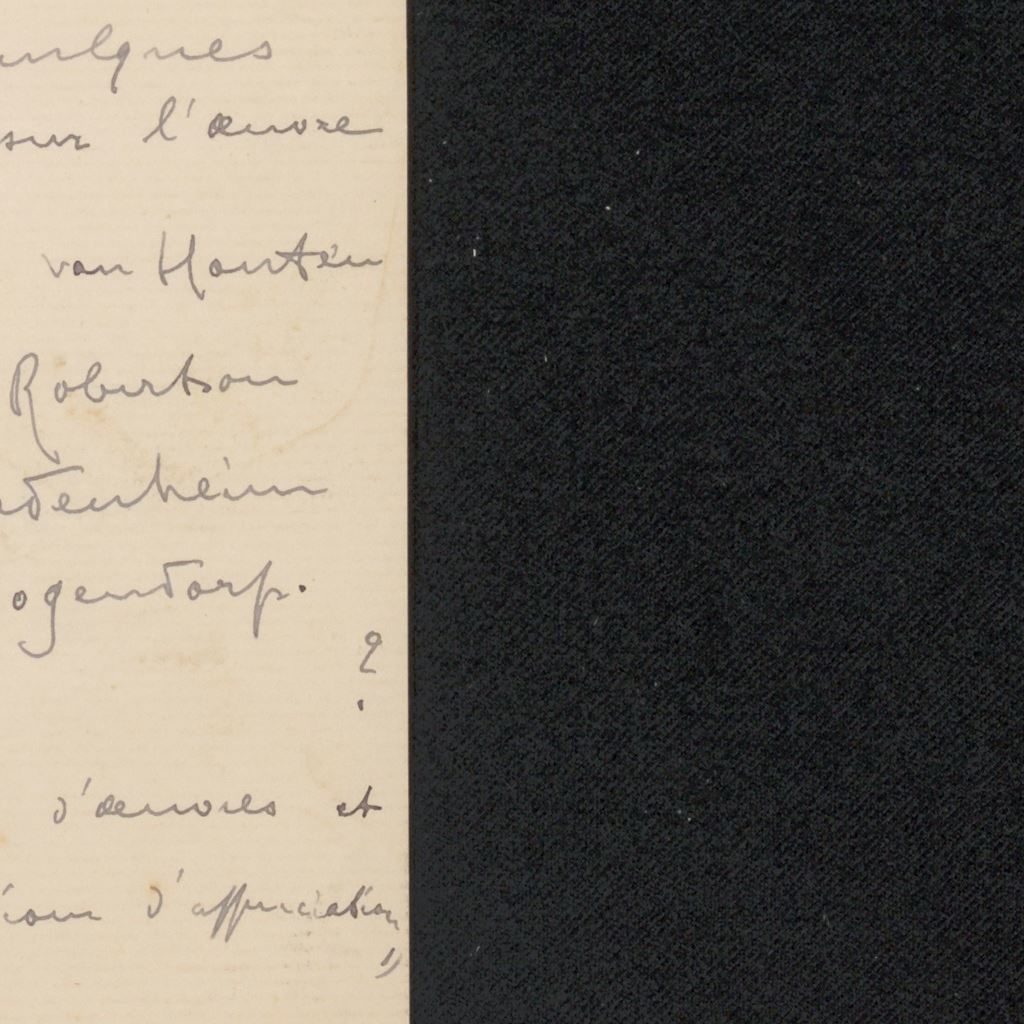 quelques
sur l'œuvre
van Houten
Robertson
denheim
ogendorp.
?
d'œuvres et
d'appréciation
"